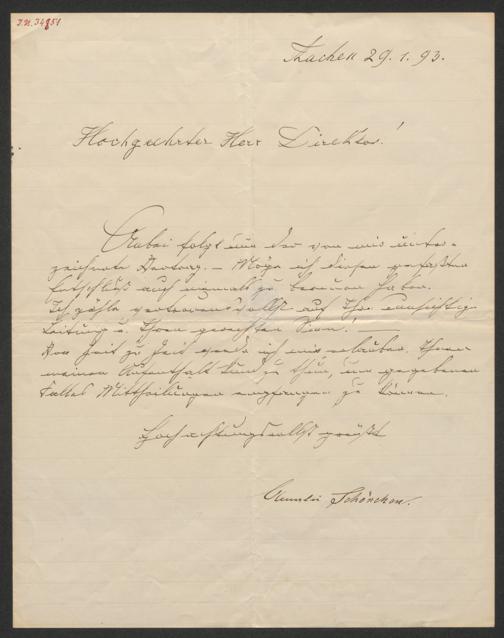 I.N. 34851
Aachen 29. 1. 93.
Hochgeehrter Herr Direktor!
Anbei folgt nun der von mir unter-
zeichnete Vertrag. — Möge ich diesen gefaßten
Entschluß auch niemals zu bereuen haben.
Ich zähle vertrauensvollst auf Ihre einsichtige
Leitung u. Ihren gerechten Sinn! —
Von Zeit zu Zeit werde ich mir erlauben, Ihnen
meinen Aufenthalt kund zu thun, um gegebenen
Falles Mittheilungen empfangen zu können.
Hochachtungsvollst grüßt
Amalie Schönchen.